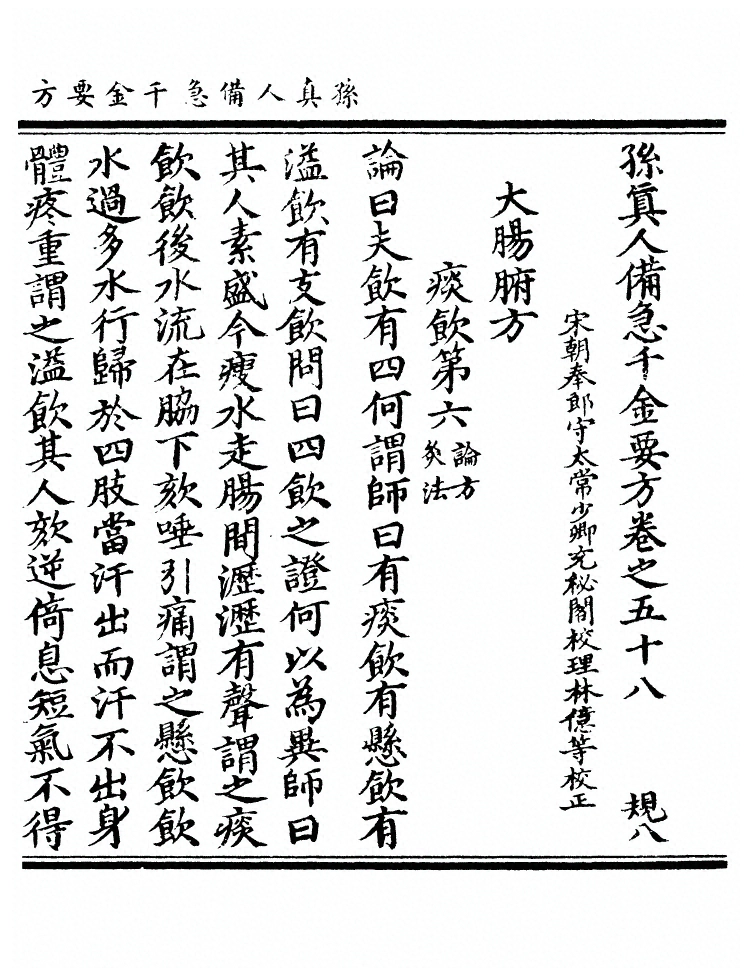 孫真人備急千金要方
孫真人備急千金要方卷之五十八　規八
宋朝奉郎守太常少卿充秘閣校理林億等校正
大腸腑方
痰飲第六 論方 灸法
論曰夫飲有四何謂師曰有痰飲有懸飲有
溢飲有支飲問曰四飲之證何以為異師曰
其人素盛今瘦水走腸間瀝瀝有聲謂之痰
飲飲後水流在脇下欬唾引痛謂之懸飲飲
水過多水行歸於四肢當汗出而汗不出身
體疼重謂之溢飲其人欬逆倚息短氣不得